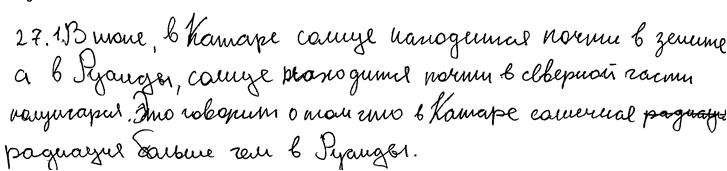 27.1. В июне, в Катаре солнце находится почти в зените
а в Руанды, солнце находится почти в северной части
полушария. Это говорит о том что в Катаре солнечная радиация
радиация больше чем в Руанды.